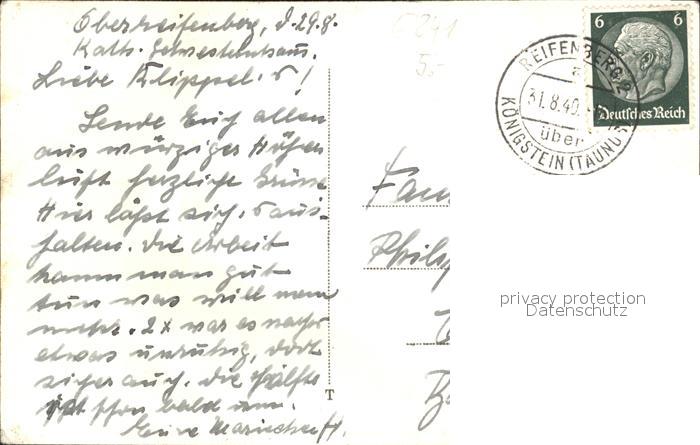 Oberreifenberg, d. 29.8.
Kath. Schwesternhaus.
Liebe Klippel's!
Sende Euch allen
aus würziger Höhen
luft herzliche Grüsse
Hier lässt sich's aus-
halten. Die Arbeit
kann man gut
tun was will man
mehr. 2x war es nachts
etwas unruhig, dort
sicher auch. Die Hälfte
ist schon bald um.
Eure
Fam
Philip
T
6 6
Deutsches Reich
REIFENBERG
a
31.8.40.
über
KÖNIGSTEIN (TAUNUS)
privacy protection
Datenschutz